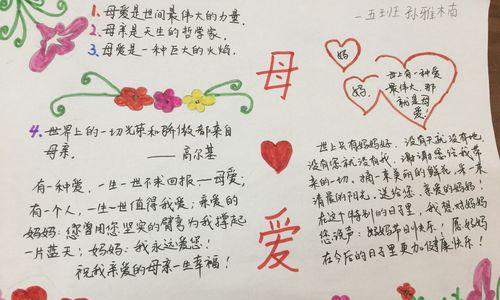 一五班 孙雅楠
1. 母爱是世间最伟大的力量.
2. 母亲是天生的哲学家.
3. 母爱是一种巨大的火焰.
4. 世界上的一切光荣和骄傲都来自
母亲.
——高尔基
有一种爱,一生一世不求回报——母爱;
有一个人,一生一世值得我爱;亲爱的
妈妈:您曾用您坚实的臂弯为我撑起
一片蓝天;妈妈:我永远爱您!
祝我亲爱的母亲一生幸福!
母
爱
妈
妈.
世上有一种爱
最伟大.那
就是母
爱!
世上只有妈妈好.没有天就没有地
没有您就没有我.谢谢您给我带
来的一切.摘一束美丽的鲜花,采一束
清晨的阳光.送给您.亲爱的妈妈!
在这个特别的日子里,我想对妈妈
您说声:妈妈节日快乐!愿妈妈
在今后的日子里更加健康快乐!